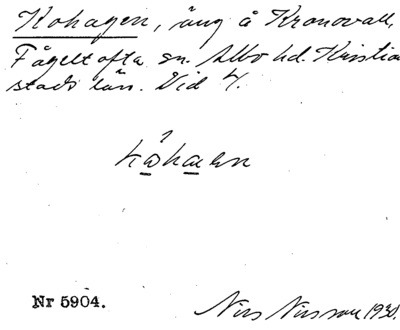 Kohagen, äng å Kronovall,
Fågeltofta sn. Albo hd. Kristian
stads län. Vid 4.
Nr 5904.
Nils Nilsson 1930.